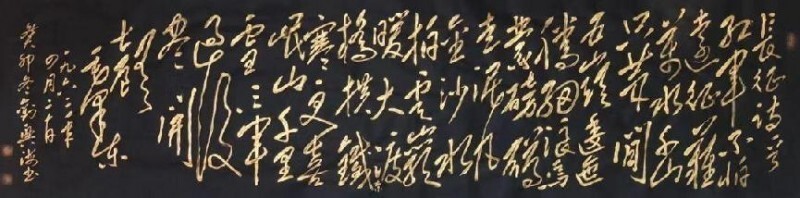 長征詩一首
紅軍不怕
遠征難
萬水千山
只等閒
五嶺逶迤
騰細浪烏
蒙磅礴
走泥丸
金沙水
拍雲崖
暖大渡
橋橫鐵
寒更喜
岷山千里
雪三軍
過後
盡開
顏
毛澤東
一九六二年
四月二十日
癸卯冬